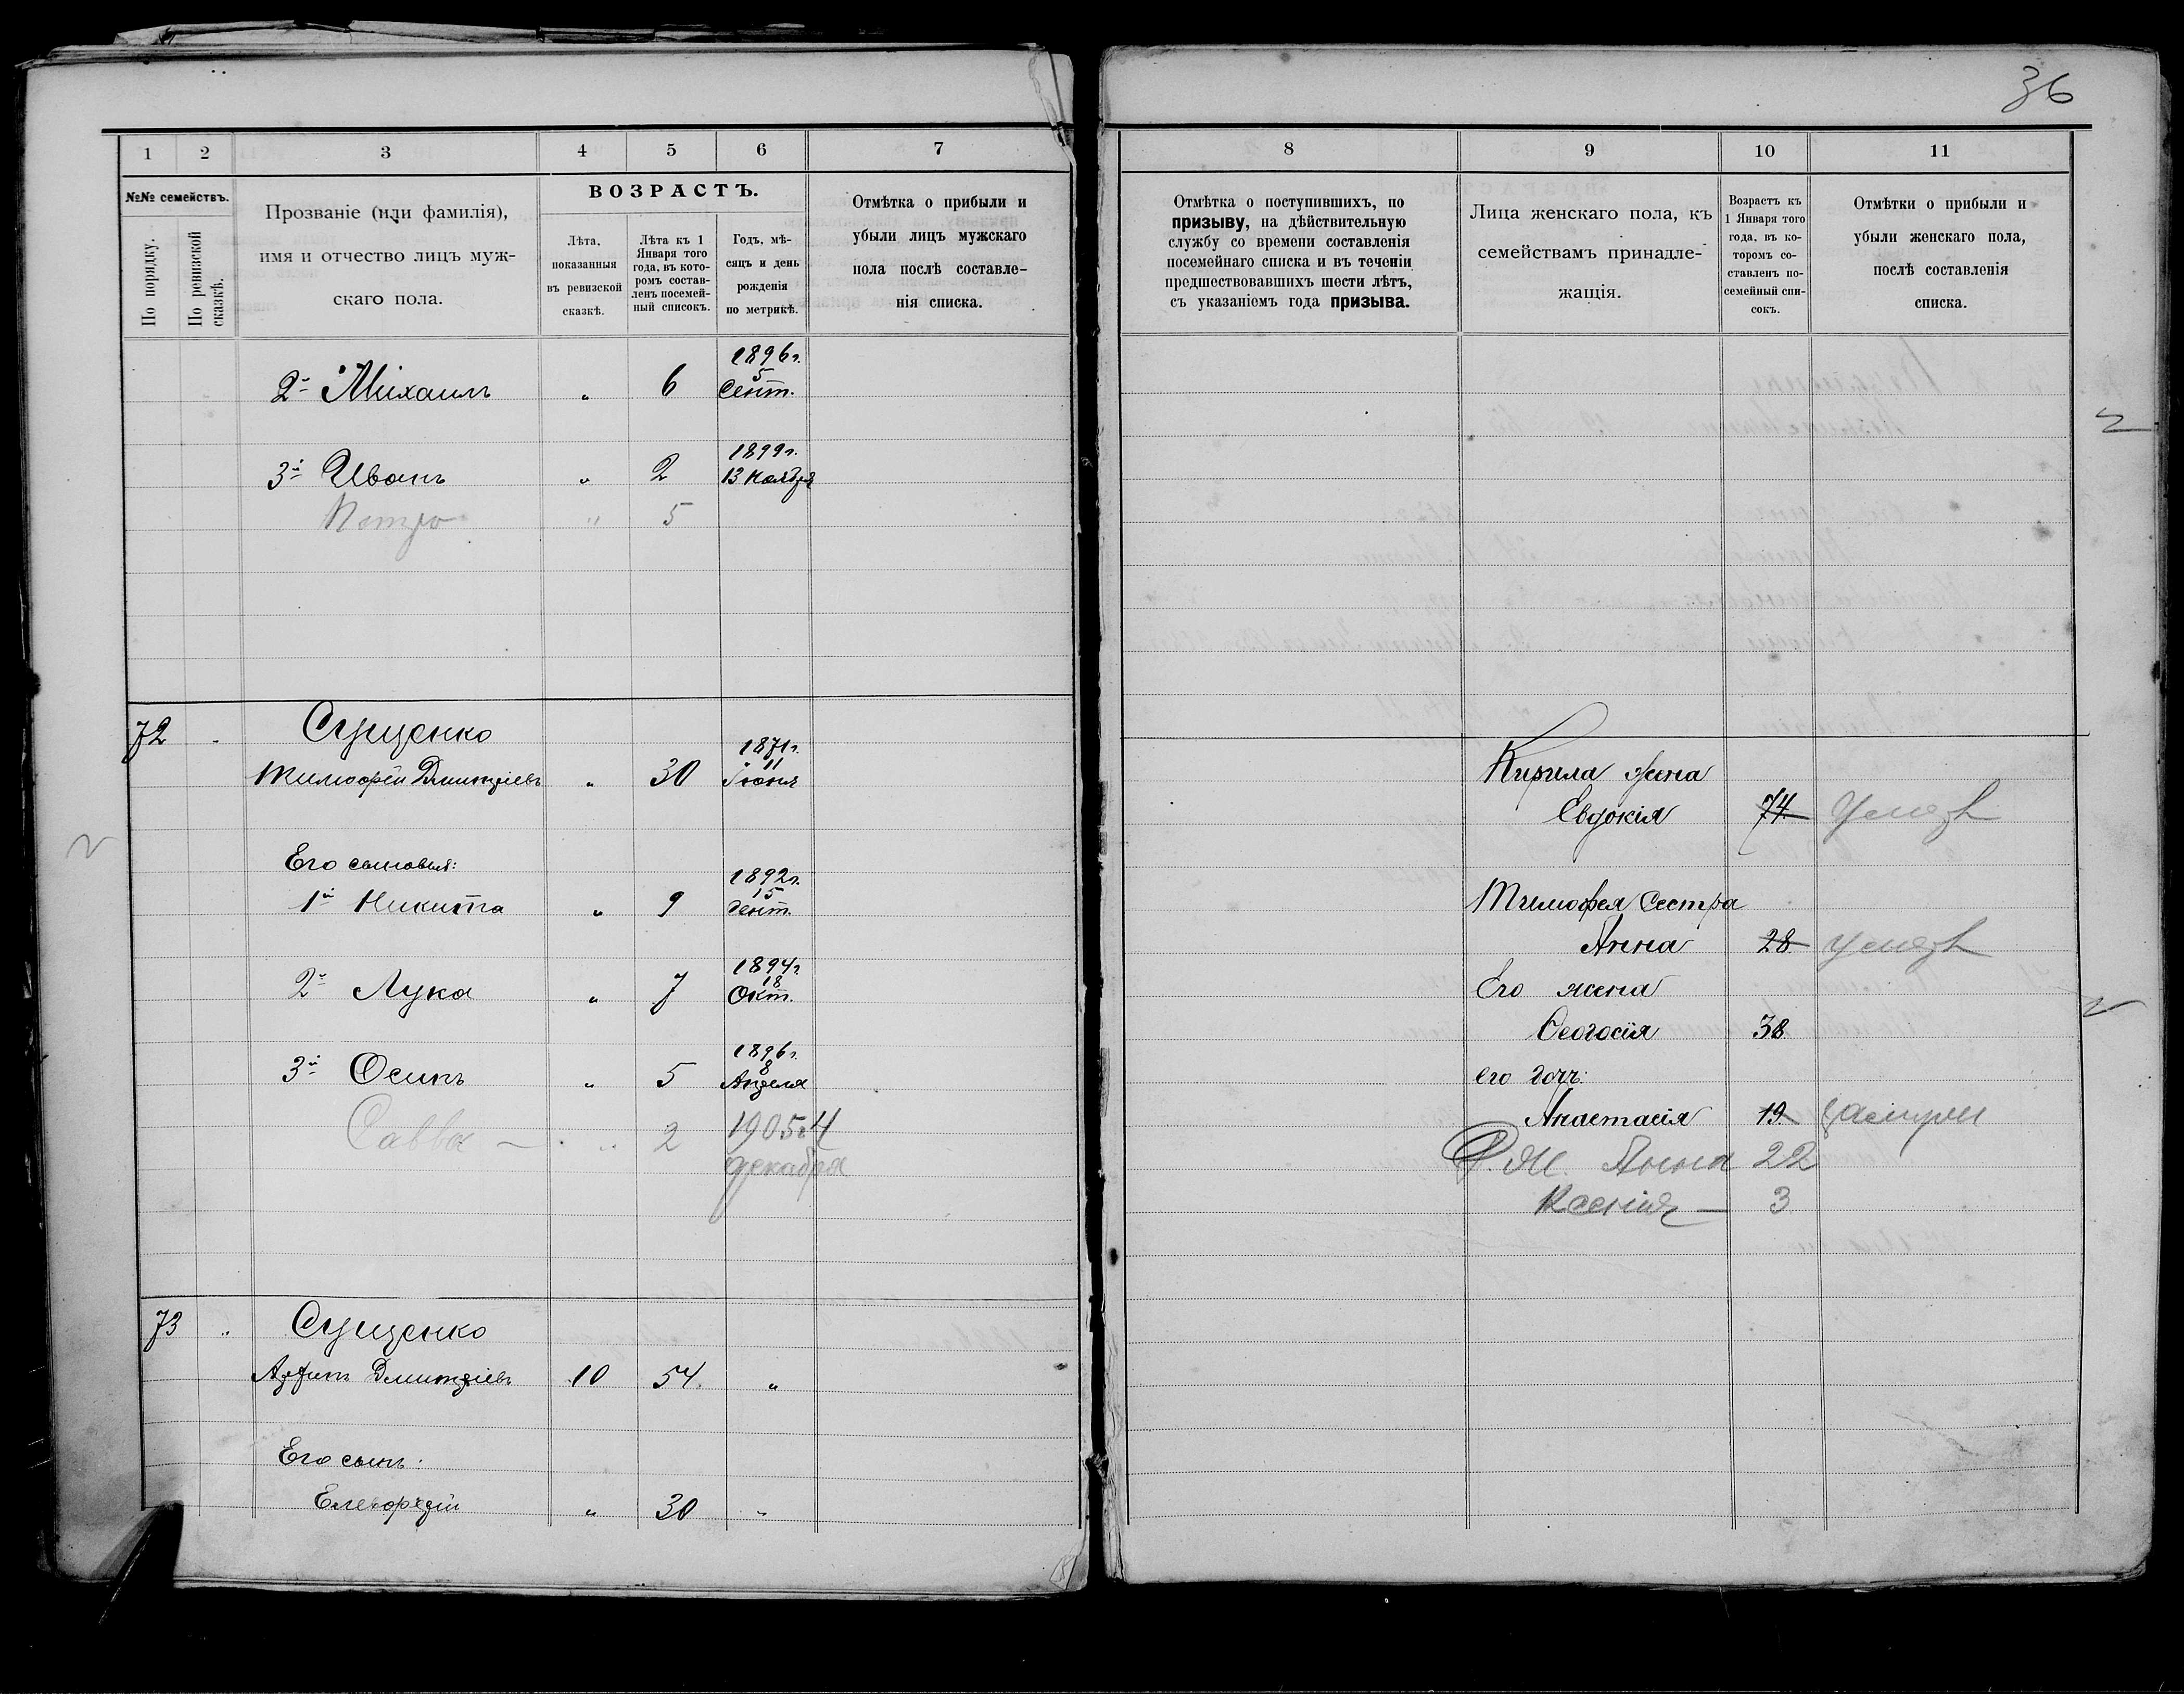 36
1 2 3 4 5 6 7
№№ семействъ.
По порядку.
По ревизской сказкѣ.
Прозваніе (или фамилія),
имя и отчество лицъ муж-
скаго пола.
ВОЗРАСТЪ.
Лѣта,
показанныя
въ ревизской
сказкѣ.
Лѣта къ 1
Января того
года, въ кото-
ромъ состав-
ленъ посемей-
ный списокъ.
Годъ, мѣ-
сяцъ и день
рожденія
по метрикѣ.
Отмѣтка о прибыли и
убыли лицъ мужскаго
пола послѣ составле-
нія списка.
1896г.
2й Михаилъ " 6 5 Сент.
1899г.
3й Иванъ " 2 13 Ноября
Петро " 5
72 Сущенко
1871г.
Тимофей Дмитріевъ " 30 11 Іюня
Его сыновья:
1892г.
1й Никита " 9 15 Сент.
1894г.
2й Лука " 7 18 Окт.
1896г.
3й Осипъ " 5 8 Апреля
Савва — " 2 1905г 4
декабря
73 " Сущенко
Дмитріевъ 10 54. "
Его сынъ:
" 30 "
8 9 10 11
Отмѣтка о поступившихъ, по
призыву, на дѣйствительную
службу со времени составленія
посемейнаго списка и въ теченіи
предшествовавшихъ шести лѣтъ,
съ указаніемъ года призыва.
Лица женскаго пола, къ
семействамъ принадле-
жащія.
Возрастъ къ
1 Января того
года, въ ко-
торомъ со-
ставленъ по-
семейный спи-
сокъ.
Отмѣтки о прибыли и
убыли женскаго пола,
послѣ составленія
списка.
Кирила жена
Евдокія 74
Тимофея сестра
Анна 28
Его жена
Феодосія 38
его дочъ:
Анастасія 19.
Ж. Анна 22
Ксенія — 3